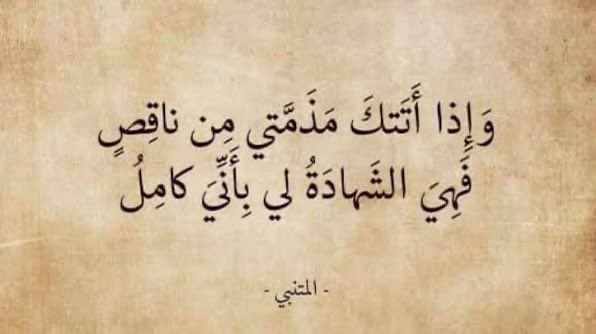 وَإِذا أَتَتكَ مَذَمَّتي مِن ناقِصٍ
فَهِيَ الشَهادَةُ لي بِأَنِّيَ كامِلُ
- المتنبي -